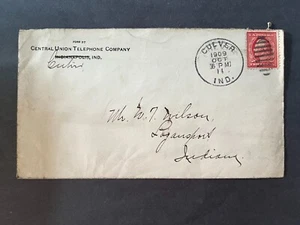 CENTRAL UNION TELEPHONE COMPANY
INDIANAPOLIS, IND.
Culver
CULVER
1909
OCT
PM
11
IND.
Mr. W. T. Wilson,
Logansport,
Indiana